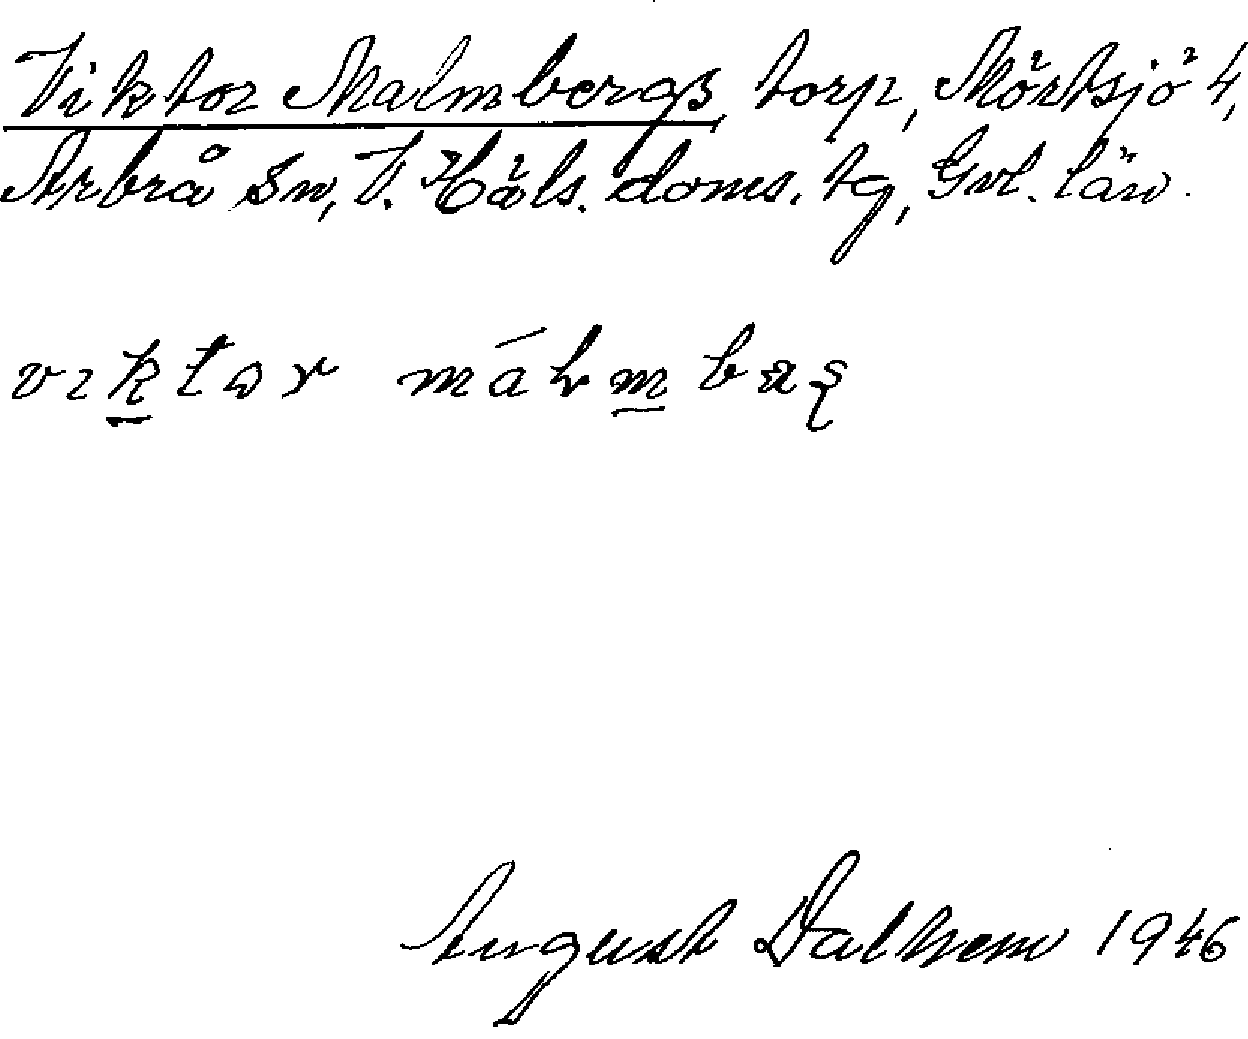 Viktor Malmbergs, torp, Mörtsjö 4,
Arbrå sn, V. Häls. doms. tg, Gvl. län.
vıktɷr
August Dalhem 1946